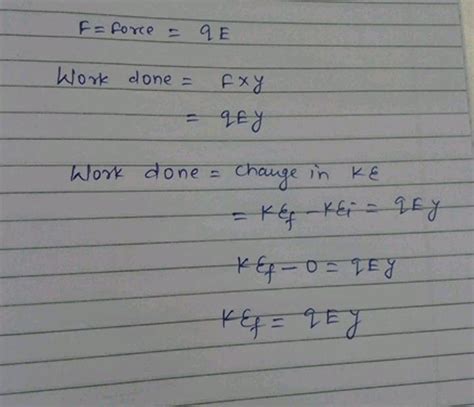 F = Force = qE
Work done = F×y
= qEy
Work done = Change in KE
= KEf - KEi = qEy
KEf - 0 = qEy
KEf = qEy